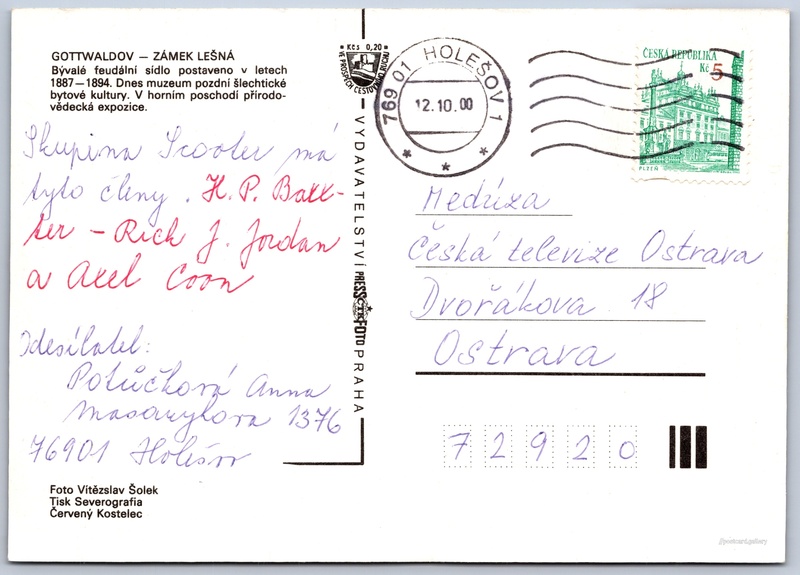 GOTTWALDOV — ZÁMEK LEŠNÁ
Bývalé feudální sídlo postaveno v letech
1887—1894. Dnes muzeum pozdní šlechtické
bytové kultury. V horním poschodí přírodo-
vědecká expozice.
Skupina Scooter má
tyto členy. H. P. Baxx-
ter – Rich J. Jordan
a Axel Coon
Odesílatel:
Potůčková Anna
Masarykova 1376
76901 Holešov
Foto Vítězslav Šolek
Tisk Severografia
Červený Kostelec
Kčs 0,20
VE PROSPĚCH CESTOVNÍHO RUCHU
VYDAVATELSTVÍ PRESSFOTO PRAHA
ČTK
769 01 HOLEŠOV 1
12.10.00
ČESKÁ REPUBLIKA
Kč 5
PLZEŇ
Medúza
Česká televize Ostrava
Dvořákova 18
Ostrava
72920
@postcard.gallery